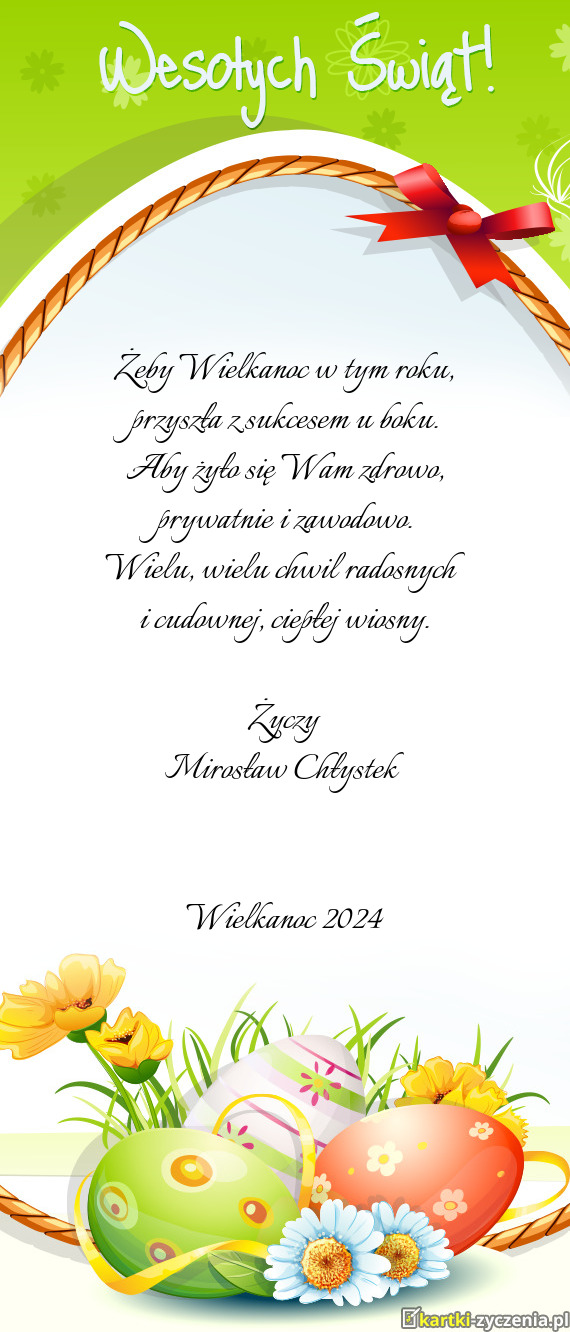 Wesołych Świąt!
Żeby Wielkanoc w tym roku,
przyszła z sukcesem u boku.
Aby żyło się Wam zdrowo,
prywatnie i zawodowo.
Wielu, wielu chwil radosnych
i cudownej, ciepłej wiosny.
Życzy
Mirosław Chłystek
Wielkanoc 2024
kartki-zyczenia.pl